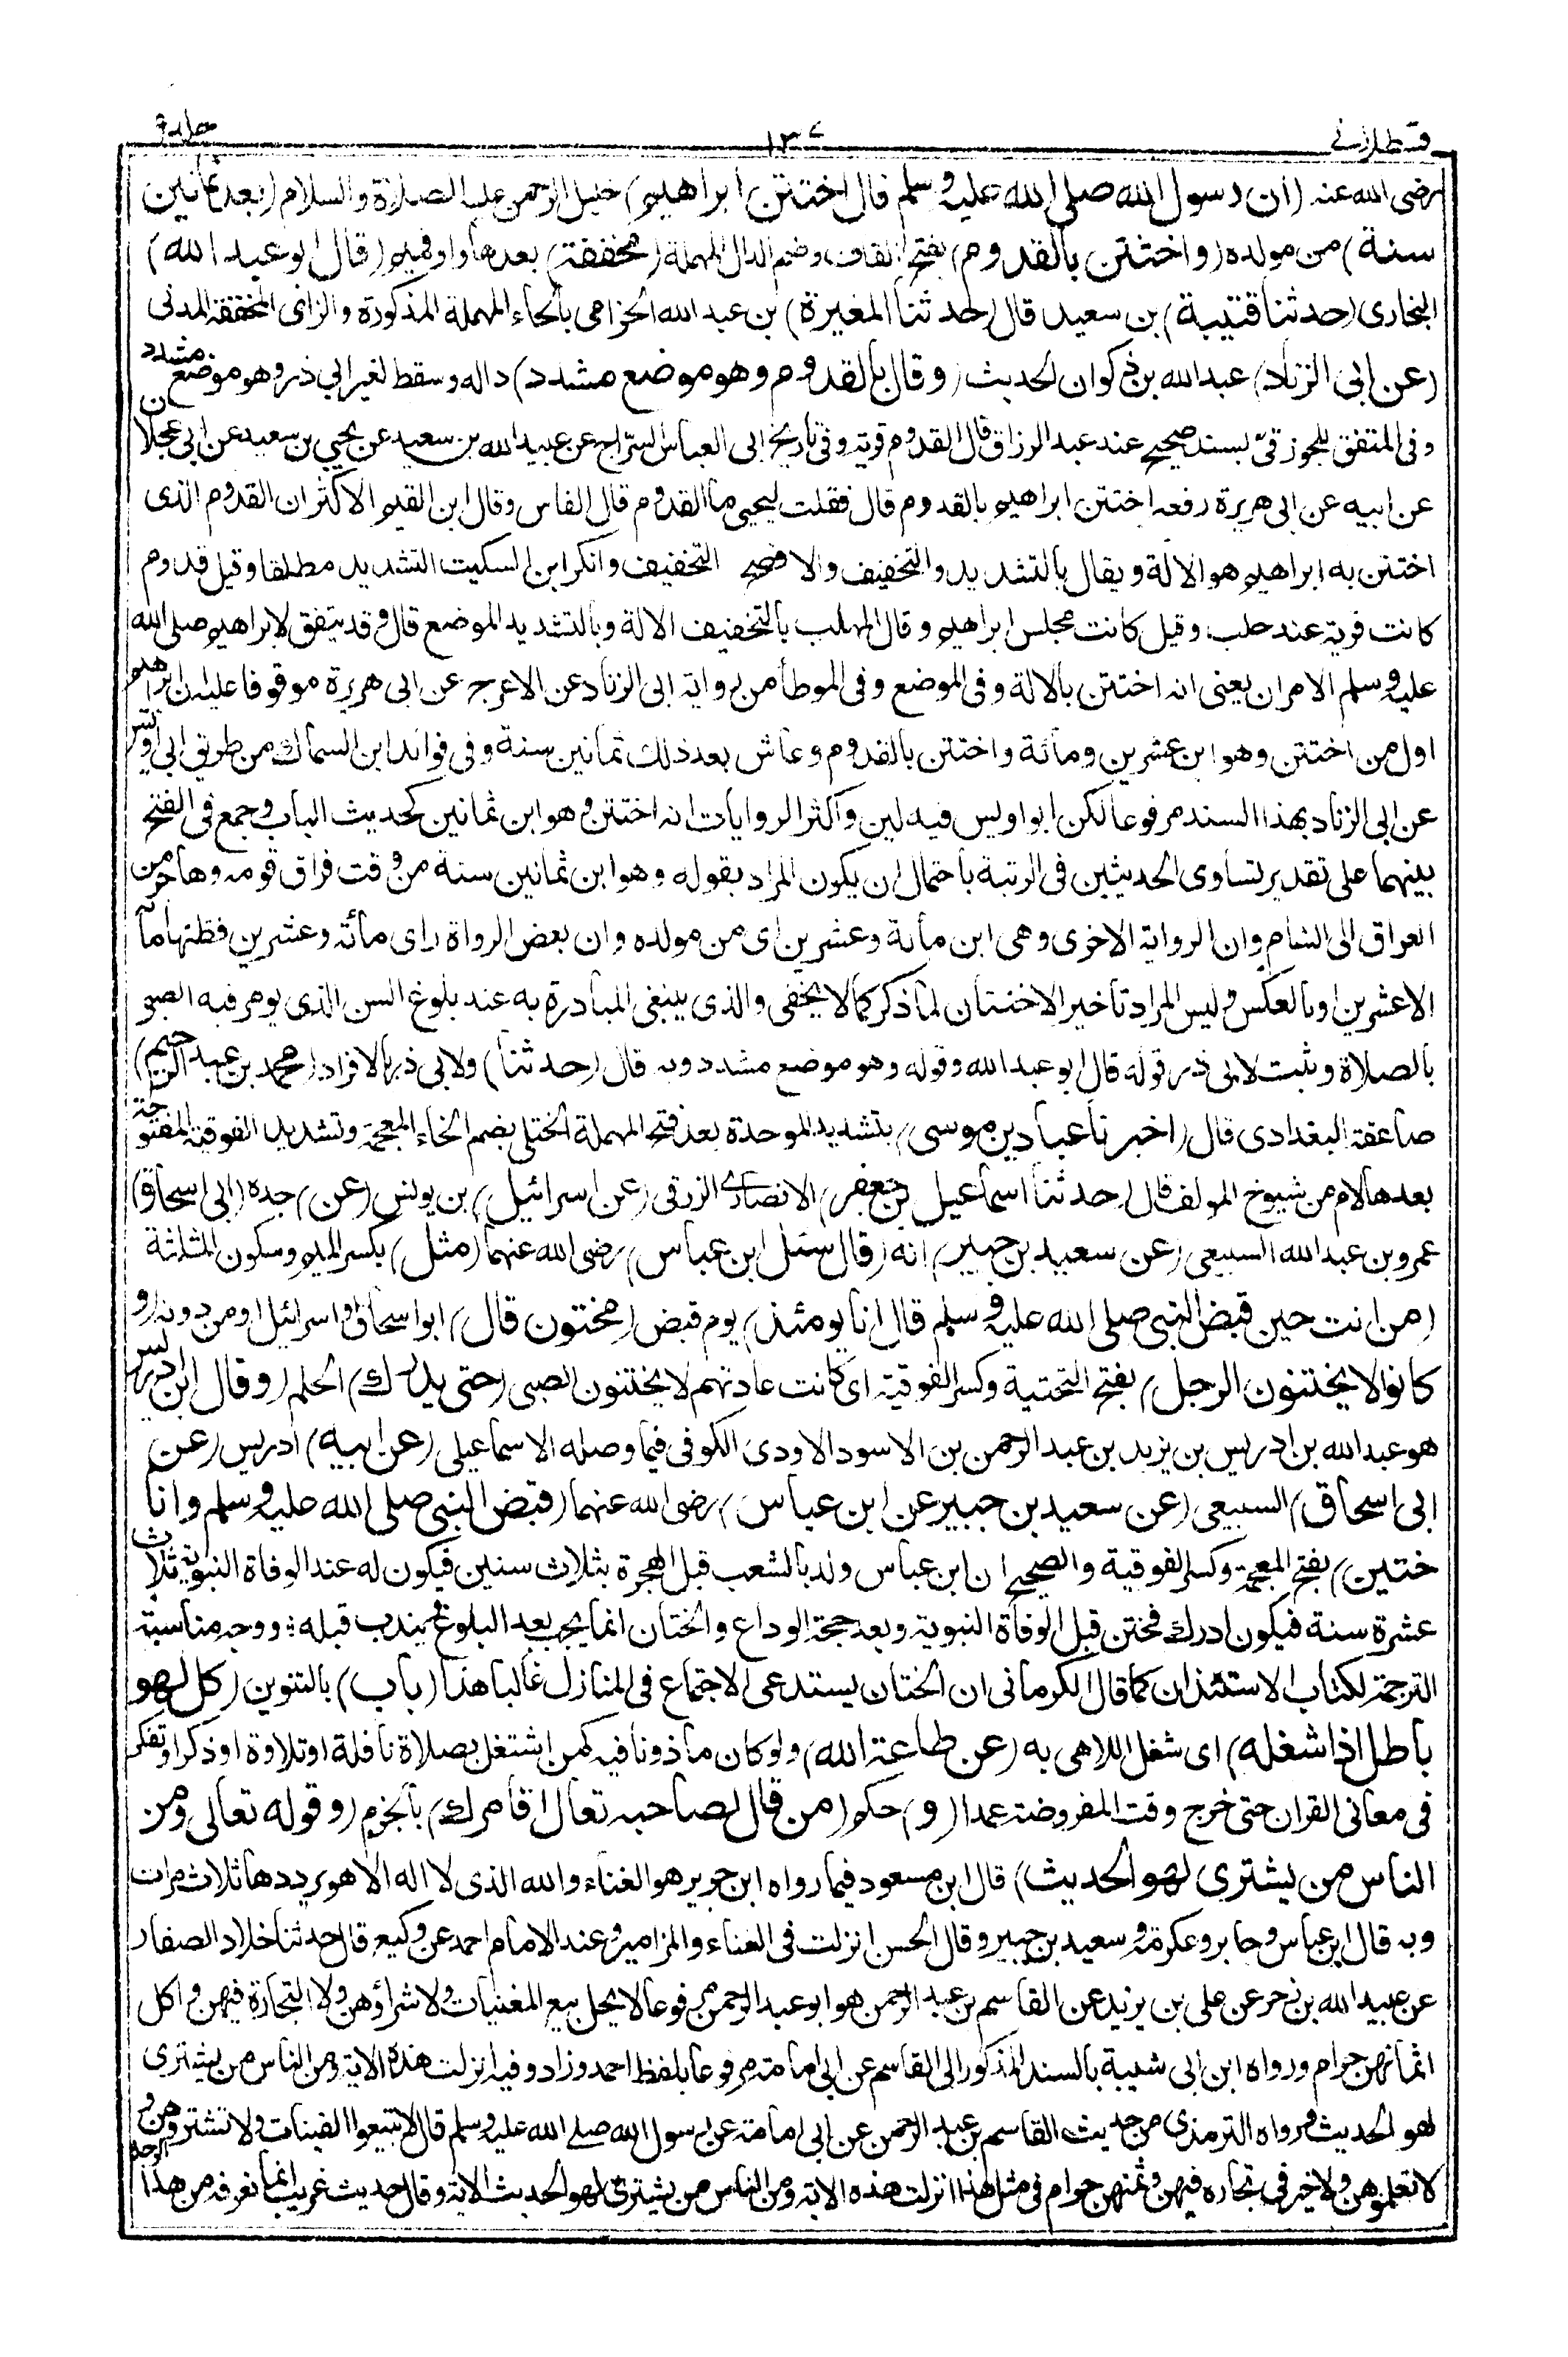 قسطلانی ١٣٧ جلد٩
رضى الله عنه (ان رسول الله صلى الله عليه وسلم قال اختتن ابراهيم) خليل الرحمن عليه الصلاة والسلام (بعد ثمانين
سنة) من مولده (واختتن بالقدوم) بفتح القاف وضم الدال المهملة (مخففة) بعدها واو فميم (قال ابو عبد الله)
البخارى (حدثنا قتيبة) بن سعيد قال (حدثنا المغيرة) بن عبد الله الحزامى بالحاء المهملة المذكورة والزاى المخففة المدنى
(عن ابى الزناد) عبد الله بن ذكوان الحديث (وقال بالقدوم وهو موضع مشدد) داله وسقط لغير ابى ذر وهو موضع مشدد
وفى المتفق للجوزقى بسند صحيح عند عبد الرزاق قال القدوم قرية وفى تاريخ ابى العباس السراج عن عبيد الله بن سعيد عن يحيى بن سعيد عن ابى عجلان
عن ابيه عن ابى هريرة رفعه اختتن ابراهيم بالقدوم قال فقلت ليحيى ما القدوم قال الفاس وقال ابن القيم الاكثر ان القدوم الذى
اختتن به ابراهيم هو الالة ويقال بالتشديد والتخفيف والافصح التخفيف وانكر ابن السكيت التشديد مطلقا وقيل قدوم
كانت قرية عند حلب وقيل كانت مجلس ابراهيم وقال المهلب بالتخفيف الالة وبالتشديد الموضع قال وقد يتفق لابراهيم صلى الله
عليه وسلم الامران يعنى انه اختتن بالالة وفى الموضع وفى الموطأ من رواية ابى الزناد عن الاعرج عن ابى هريرة موقوفا عليه ان ابراهيم
اول من اختتن وهو ابن عشرين ومائة واختتن بالقدوم وعاش بعد ذلك ثمانين سنة وفى فوائد ابن السماك من طريق ابى اويس
عن ابى الزناد بهذا السند مرفوعا لكن ابو اويس فيه لين واكثر الروايات انه اختتن وهو ابن ثمانين كحديث الباب وجمع فى الفتح
بينهما على تقدير تساوى الحديثين فى الرتبة باحتمال ان يكون المراد بقوله وهو ابن ثمانين سنة من وقت فراق قومه وهاجر من
العراق الى الشام وان الرواية الاخرى وهى ابن مائة وعشرين اى من مولده وان بعض الرواة راى مائة وعشرين فظنها مائة
الا عشرين او بالعكس وليس المراد تاخير الاختتان لما ذكر كما لا يخفى والذى ينبغى المبادرة به عند بلوغ السن الذى يومر فيه الصبى
بالصلاة وثبت لابى ذر قوله قال ابو عبد الله وقوله وهو موضع مشدد وبه قال (حدثنا) ولابى ذر بالافراد (محمد بن عبد الرحيم)
صاعقة البغدادى قال (اخبرنا عباد بن موسى) بتشديد الموحدة بعد فتح المهملة الختلى بضم الخاء المعجمة وتشديد الفوقية المفتوحة
بعدها لام من شيوخ المولف قال (حدثنا اسماعيل بن جعفر) الانصارى الزرقى (عن اسرائيل) بن يونس (عن) جده (ابى اسحاق)
عمرو بن عبد الله السبيعى (عن سعيد بن جبير) انه (قال سئل ابن عباس) رضى الله عنهما (مثل) بكسر الميم وسكون المثلثة
(من انت حين قبض النبى صلى الله عليه وسلم قال انا يومئذ) يوم قبض (مختون قال) ابو اسحاق او اسرائيل او من دونه (و
كانوا لا يختنون الرجل) بفتح التحتية وكسر الفوقية اى كانت عادتهم لا يختنون الصبى (حتى يدرك) الحلم (وقال ابن ادريس)
هو عبد الله بن ادريس بن يزيد بن عبد الرحمن بن الاسود الاودى الكوفى فيما وصله الاسماعيلى (عن ابيه) ادريس (عن
ابى اسحاق) السبيعى (عن سعيد بن جبير عن ابن عباس) رضى الله عنهما (قبض النبى صلى الله عليه وسلم وانا
ختين) بفتح المعجمة وكسر الفوقية والصحيح ان ابن عباس ولد بالشعب قبل الهجرة بثلاث سنين فيكون له عند الوفاة النبوية ثلاث
عشرة سنة فيكون ادرك فختن قبل الوفاة النبوية وبعد حجة الوداع والختان انما يجب بعد البلوغ ويندب قبله ووجه مناسبة
الترجمة لكتاب الاستئذان كما قال الكرمانى ان الختان يستدعى الاجتماع فى المنازل غالبا هذا (باب) بالتنوين (كل لهو
باطل اذا شغله) اى شغل اللاهى به (عن طاعة الله) ولو كان ماذونا فيه كمن اشتغل بصلاة نافلة او تلاوة او ذكر او تفكر
فى معانى القران حتى خرج وقت المفروضة عمدا (و) حكم (من قال لصاحبه تعال اقامرك) بالجزم (وقوله تعالى ومن
الناس من يشترى لهو الحديث) قال ابن مسعود فيما رواه ابن جرير هو الغناء والله الذى لا اله الا هو يرددها ثلاث مرات
وبه قال ابن عباس وجابر وعكرمة وسعيد بن جبير وقال الحسن انزلت فى الغناء والمزامير وعند الامام احمد عن وكيع قال حدثنا خلاد الصفار
عن عبيد الله بن زحر عن على بن يزيد عن القاسم بن عبد الرحمن هو ابو عبد الرحمن مرفوعا لا يحل بيع المغنيات ولا شراؤهن ولا التجارة فيهن واكل
اثمانهن حرام ورواه ابن ابى شيبة بالسند المذكور الى القاسم عن ابى امامة مرفوعا بلفظ احمد وزاد وفيه انزلت هذه الاية ومن الناس من يشترى
لهو الحديث ورواه الترمذى من حديث القاسم بن عبد الرحمن عن ابى امامة عن رسول الله صلى الله عليه وسلم قال لا تبيعوا القينات ولا تشتروهن و
لا تعلموهن ولا خير فى تجارة فيهن وثمنهن حرام فى مثل هذا انزلت هذه الاية ومن الناس من يشترى لهو الحديث الاية وقال حديث غريب انما نعرفه من هذا الوجه